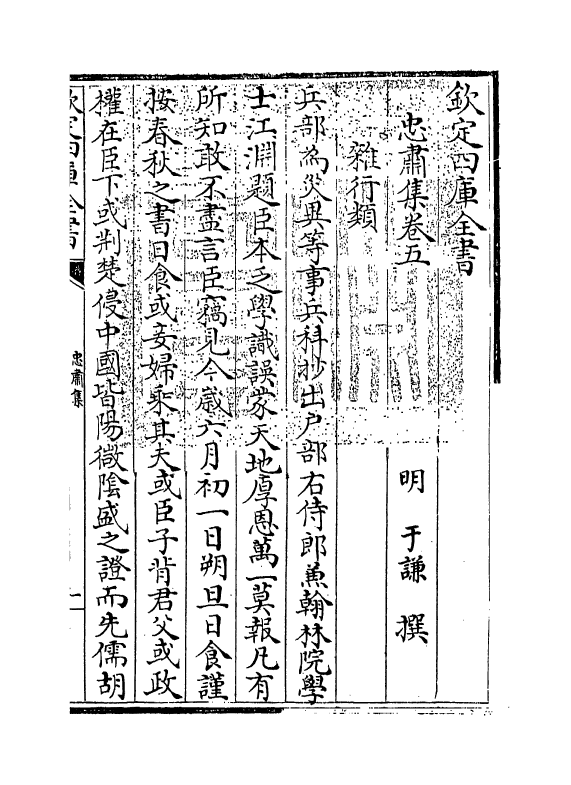 欽定四庫全書
忠肅集卷五
明 于謙 撰
雜行類
兵部為災異等事兵科抄出户部右侍郎兼翰林院學
士江淵題臣本乏學識誤蒙天地厚恩萬一莫報凡有
所知敢不盡言臣竊見今歲六月初一日朔旦日食謹
按春秋之書日食或妾婦乘其夫或臣子背君父或政
權在臣下或荆楚侵中國皆陽微陰盛之證而先儒胡
欽定四庫全書
忠肅集
一